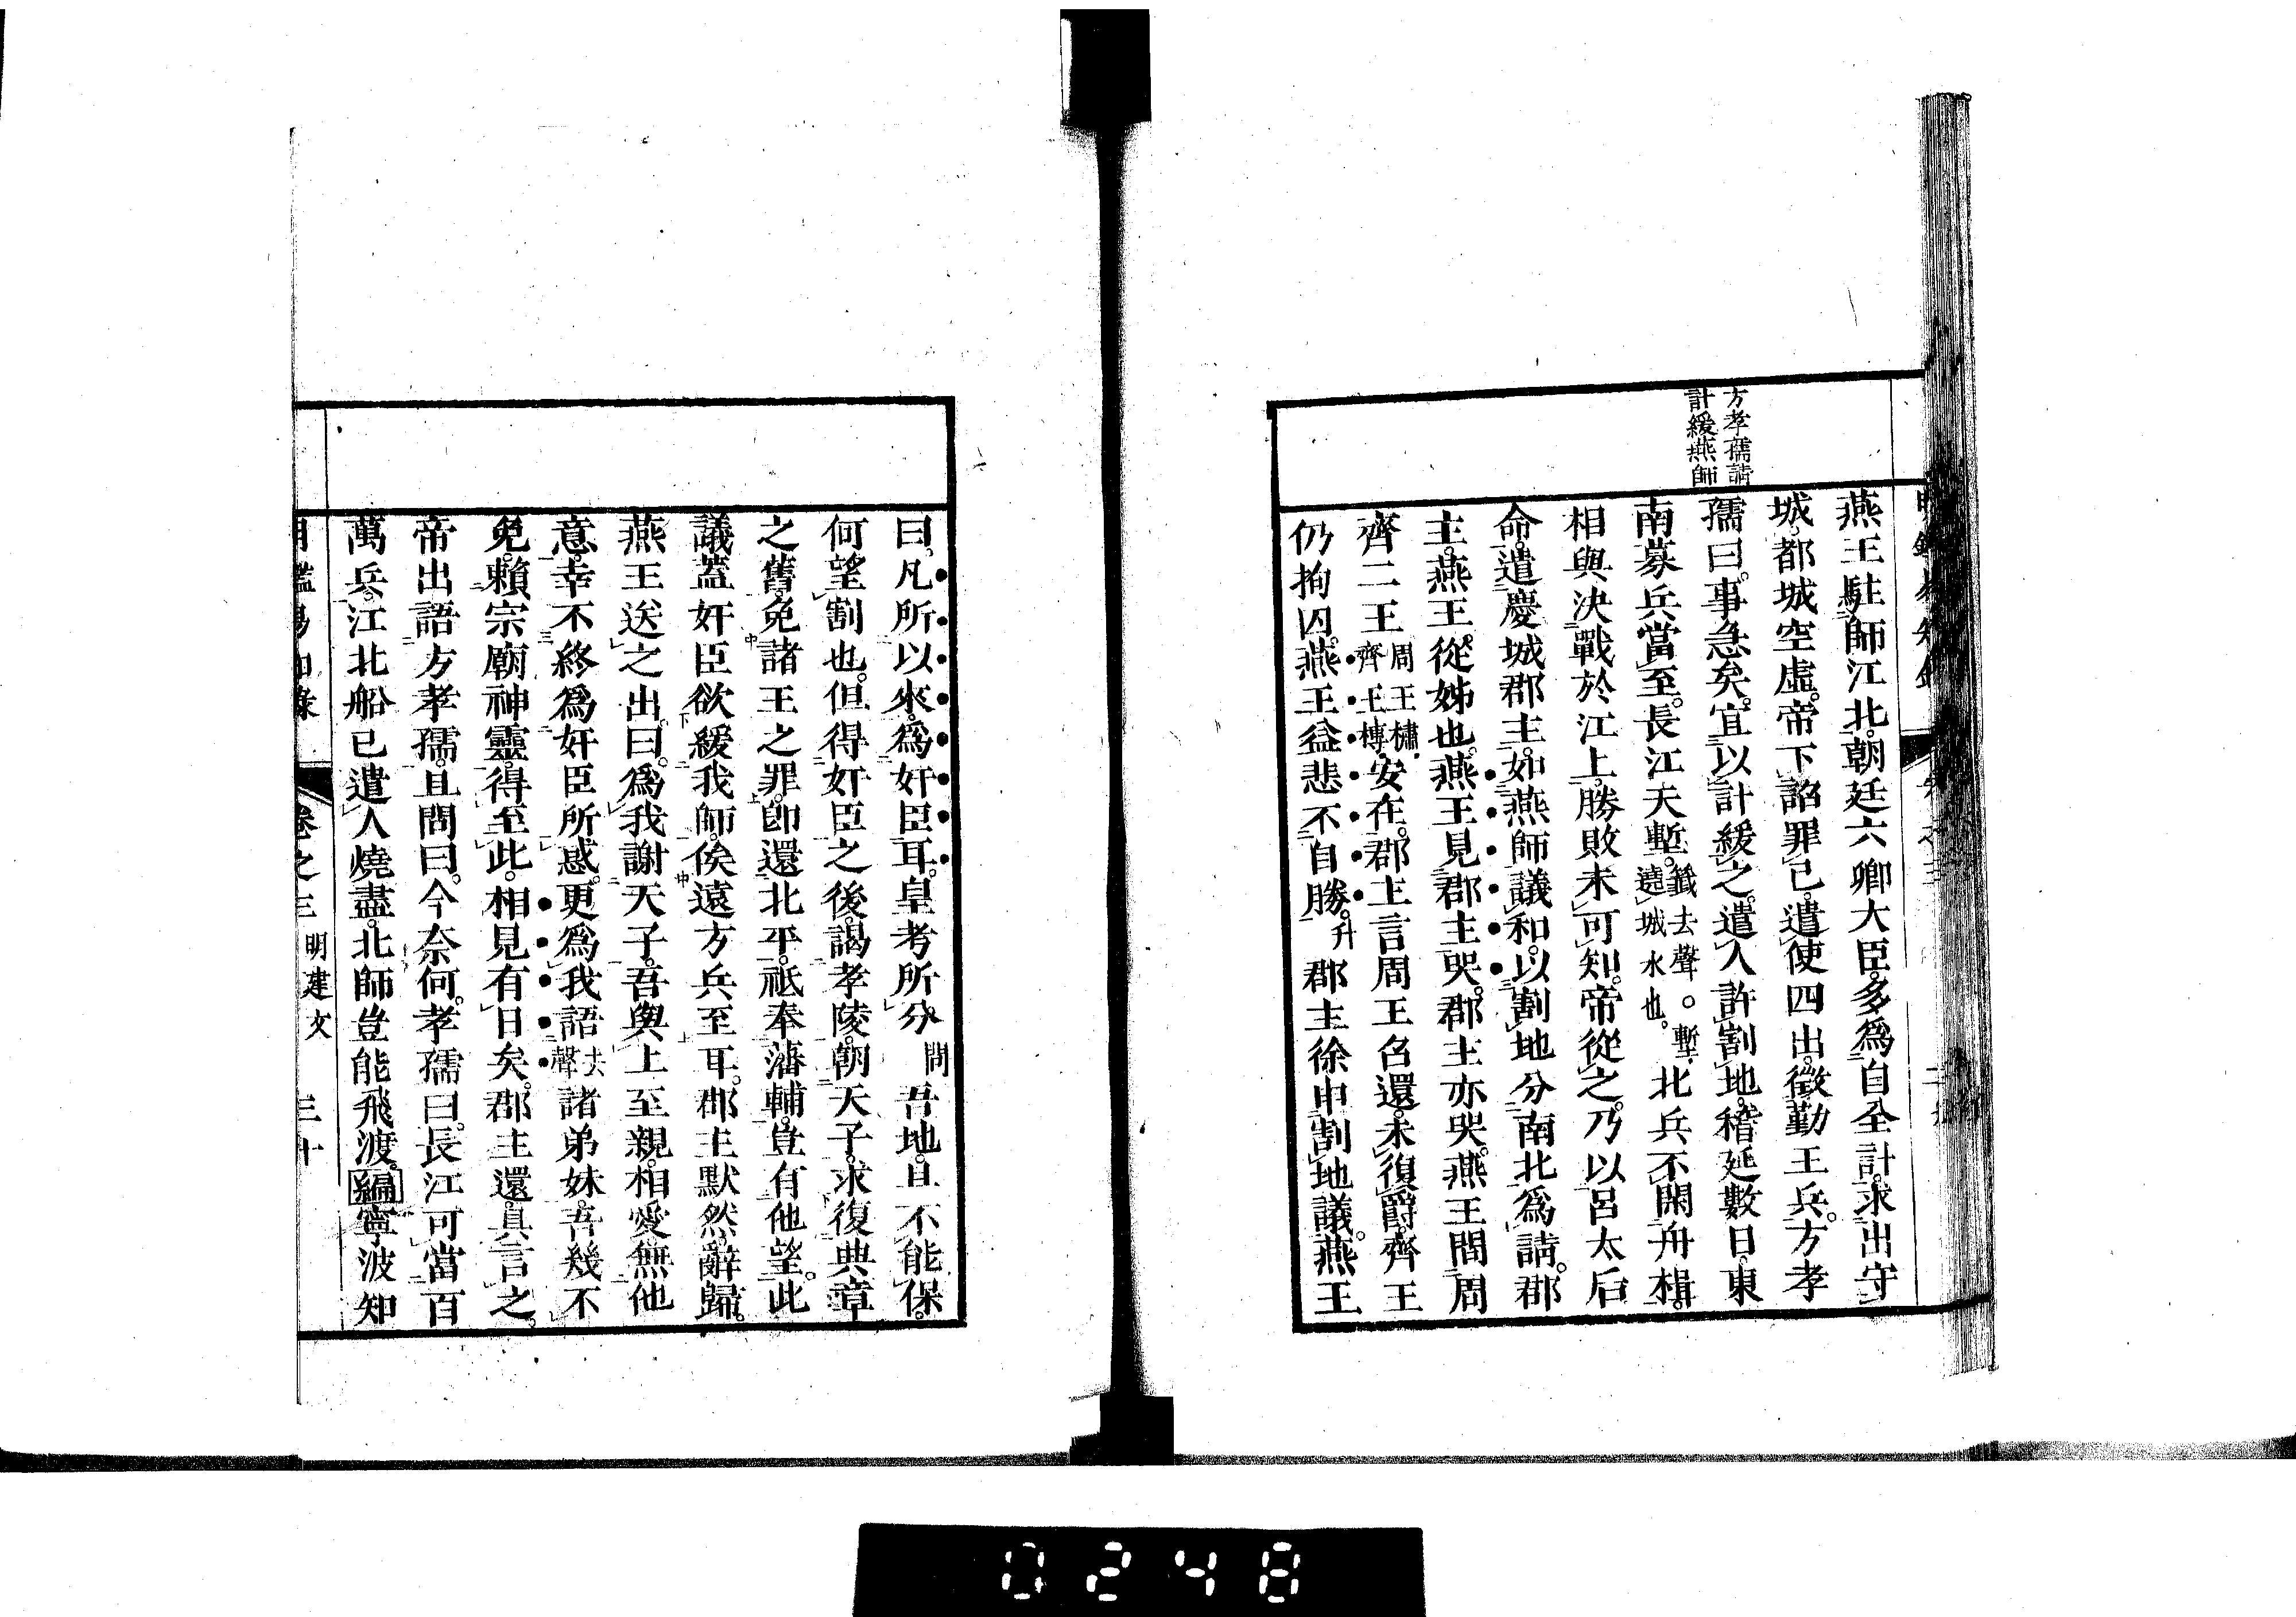 方孝孺請
計緩燕師
燕王駐師江北。朝廷六卿大臣。多爲自全計。求出守
城。都城空虛。帝下詔罪己。遣使四出。徵勤王兵。方孝
孺曰。事急矣。宜以計緩之。遣人許割地。稽延數日。東
南募兵當至。長江天塹。籤去聲。○塹,遶城水也。北兵不閑舟楫。
相與決戰於江上。勝敗未可知。帝從之。乃以呂太后
命。遣慶城郡主。如燕師議和。以割地分南北爲請。郡
主。燕王。從姊也。燕王見郡主哭。郡主亦哭。燕王問周
齊二王周王橚,齊王榑,安在。郡主言周王召還。未復爵。齊王
仍拘囚。燕王益悲不自勝。升郡主徐申割地議。燕王
曰。凡所以來。爲奸臣耳。皇考所分問吾地。且不能保。
何望割也。但得奸臣之後。謁孝陵。朝天子。求復典章
之舊。免諸王之罪。卽還北平。祗奉藩輔。豈有他望。此
議蓋奸臣欲緩我師。俟遠方兵至耳。郡主默然。辭歸。
燕王送之出。曰。爲我謝天子。吾與上至親。相愛無他
意。幸不終爲奸臣所惑。更爲我語去聲諸弟妹。吾幾不
免。賴宗廟神靈。得至此。相見有日矣。郡主還。具言之。
帝出語方孝孺。且問曰。今奈何。孝孺曰。長江可當百
萬兵。江北船已遣人燒盡。北師豈能飛渡。編寧波知
卷之三 明建文 三十
0248